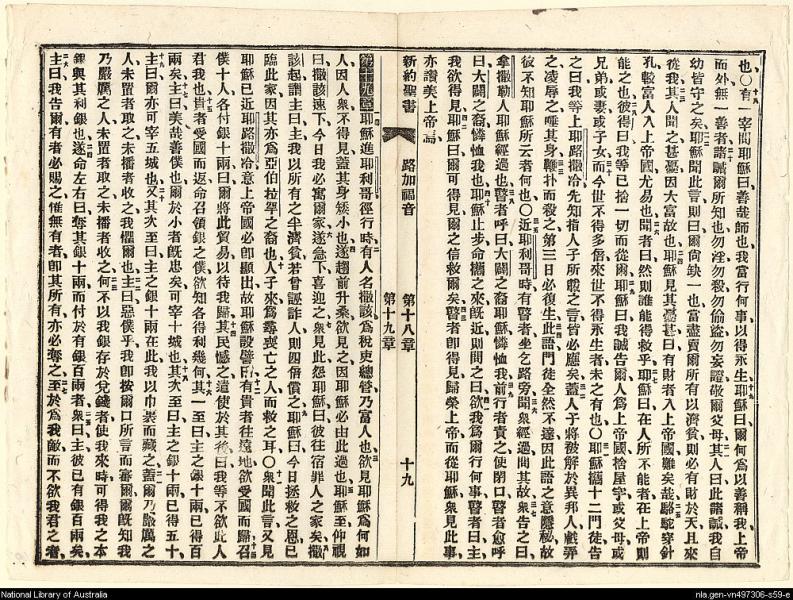 也〇有一宰問耶穌曰善哉師也我當行何事以得永生耶穌曰爾何爲以善稱我上帝
而外無一善者諸誡爾所知也勿淫勿殺勿偷盜勿妄證敬爾父母其人曰此諸誡我自
幼皆守之矣耶穌聞此言則曰爾尙缺一也當盡賣爾所有以濟貧則必有財於天且來
從我其人聞之甚憂因大富故也耶穌見其憂甚曰有財者入上帝國難矣哉駱駝穿針
孔較富人入上帝國尤易也聞者曰然則誰能得救乎耶穌曰在人所不能者在上帝則
能之也彼得曰我等已捨一切而從爾耶穌曰我誠告爾人爲上帝國捨屋宇或父母或
兄弟或妻或子女而今世不得多倍來世不得永生者未之有也〇耶穌攜十二門徒告
之曰我等上耶路撒冷先知指人子所載之言皆必應矣蓋人子將被解於異邦人戲弄
之凌辱之唾其身鞭扑而殺之第三日必復生此語門徒全然不達因此語之意隱秘故
彼不知耶穌所云者何也〇近耶利哥時有瞽者坐乞路旁聞衆經過問其故衆告之曰
拿撒勒人耶穌經過也瞽者呼曰大闢之裔耶穌憐恤我前行者責之使閉口瞽者愈呼
曰大闢之裔憐恤我也耶穌止步命攜之來旣近則問之曰欲我爲爾行何事瞽者曰主
我欲得見耶穌曰爾可得見爾之信救爾矣瞽者卽得見歸榮上帝而從耶穌衆見此事
亦讚美上帝焉
新約聖書 路加福音 第十八章 第十九章 十九
第十九章耶穌進耶利哥徑行時有人名撒該爲稅吏總管乃富人也欲見耶穌爲何如
人因人衆不得見蓋其身矮小也遂趨前升桑欲見之因耶穌必由此過也耶穌至仰視
曰撒該速下今日我必寓爾家遂急下喜迎之衆見此怨耶穌曰彼往宿罪人之家矣撒
該起謂主曰主我以所有之半濟貧若曾誣詐人則四倍償之耶穌曰今日拯救之恩已
臨此家因其亦爲亞伯拉罕之裔也人子來爲尋喪亡之人而救之耳〇衆聞此言又見
耶穌已近耶路撒冷意上帝國必卽顯出故耶穌設譬曰有貴者往遠地欲受國而歸召
僕十人各付銀十兩曰爾將此貿易以待我歸其民憾之遣使於其後曰我等不欲此人
君我也貴者受國而返命召領銀之僕欲知各得利幾何其一至曰主之銀十兩已得百
兩矣主曰美哉善僕也爾於小者旣忠矣可宰十城也其次至曰主之銀十兩已得五十
主曰爾亦可宰五城也又其次至曰主之銀十兩在此我以巾裹而藏之蓋爾乃嚴厲之
人未置者取之未播者收之我懼爾也主曰惡僕乎我卽按爾口所言而審爾爾旣知我
乃嚴厲之人未置者取之未播者收之何不以我銀存於兌錢者使我來時可得我之本
銀與其利銀也遂命左右曰奪其銀十兩而付於有銀百兩者衆曰主彼已有銀百兩矣
主曰我告爾有者必賜之惟無有者卽其所有亦必奪之至於爲我敵而不欲我君之者
National Library of Australia
nla.gen-vn497306-s59-e